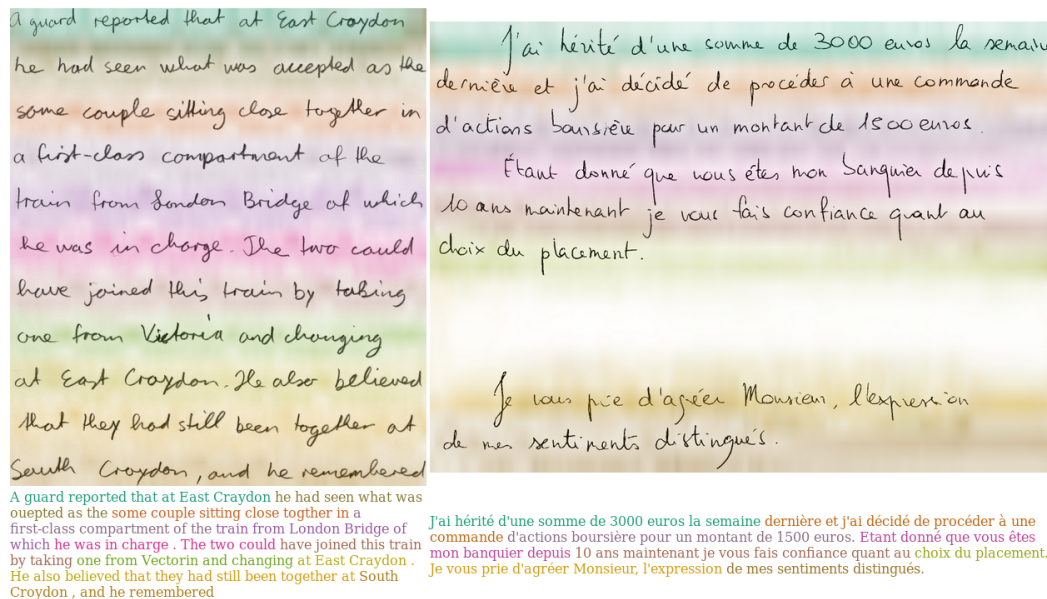 A guard reported that at East Croydon
he had seen what was accepted as the
same couple sitting close together in
a first-class compartment of the
train from London Bridge of which
he was in charge. The two could
have joined this train by taking
one from Victoria and changing
at East Croydon. He also believed
that they had still been together at
South Croydon, and he remembered
A guard reported that at East Craydon he had seen what was
ouepted as the some couple sitting close togther in a
first-class compartment of the train from London Bridge of
which he was in charge . The two could have joined this train
by taking one from Vectorin and changing at East Craydon .
He also believed that they had still been together at South
Croydon , and he remembered
J'ai hérité d'une somme de 3000 euros la semaine
dernière et j'ai décidé de procéder à une commande
d'actions boursière pour un montant de 1500 euros.
Étant donné que vous êtes mon banquier depuis
10 ans maintenant je vous fais confiance quant au
choix du placement.
Je vous prie d'agréer Monsieur, l'expression
de mes sentiments distingués.
J'ai hérité d'une somme de 3000 euros la semaine dernière et j'ai décidé de procéder à une
commande d'actions boursière pour un montant de 1500 euros. Etant donné que vous êtes
mon banquier depuis 10 ans maintenant je vous fais confiance quant au choix du placement.
Je vous prie d'agréer Monsieur, l'expression de mes sentiments distingués.